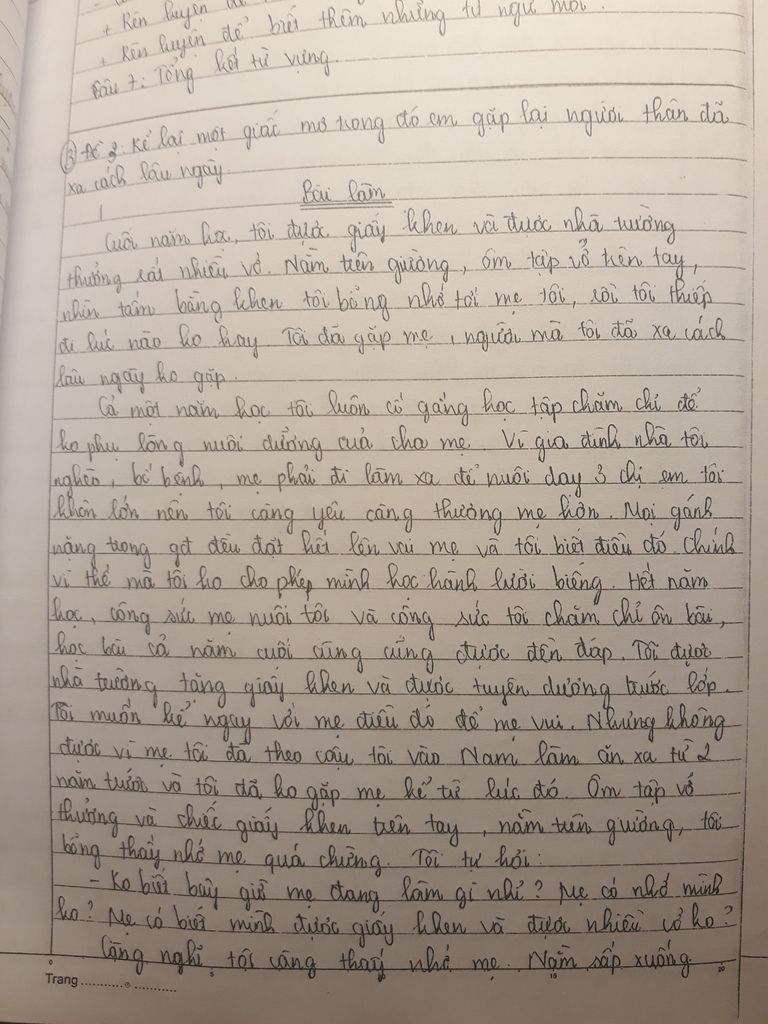 + Rèn luyện để
+ Rèn luyện để biết thêm những từ ngữ mới.
Câu 7: Tổng kết từ vựng.
Đề 3: Kể lại một giấc mơ trong đó em gặp lại người thân đã
xa cách lâu ngày.
Bài làm
Cuối năm học, tôi được giấy khen và được nhà trường
thưởng rất nhiều vở. Nằm trên giường, ôm tập vở trên tay,
nhìn tấm bằng khen tôi bỗng nhớ tới mẹ tôi, rồi tôi thiếp
đi lúc nào ko hay. Tôi đã gặp mẹ, người mà tôi đã xa cách
lâu ngày ko gặp.
Cả một năm học tôi luôn cố gắng học tập chăm chỉ để
ko phụ lòng nuôi dưỡng của cha mẹ. Vì gia đình nhà tôi
nghèo, bố bệnh, mẹ phải đi làm xa để nuôi dạy 3 chị em tôi
khôn lớn nên tôi càng yêu càng thương mẹ hơn. Mọi gánh
nặng trong gđ đều đặt hết lên vai mẹ và tôi biết điều đó. Chính
vì thế mà tôi ko cho phép mình học hành lười biếng. Hết năm
học, công sức mẹ nuôi tôi và công sức tôi chăm chỉ ôn bài,
học bài cả năm cuối cùng cũng được đền đáp. Tôi được
nhà trường tặng giấy khen và được tuyên dương trước lớp.
Tôi muốn kể ngay với mẹ điều đó để mẹ vui. Nhưng không
được vì mẹ tôi đã theo cậu tôi vào Nam làm ăn xa từ 2
năm trước và tôi đã ko gặp mẹ kể từ lúc đó. Ôm tập vở
thưởng và chiếc giấy khen trên tay, nằm trên giường, tôi
bỗng thấy nhớ mẹ quá chừng. Tôi tự hỏi:
- Ko biết bây giờ mẹ đang làm gì nhỉ? Mẹ có nhớ mình
ko? Mẹ có biết mình được giấy khen và được nhiều vở ko?
Càng nghĩ, tôi càng thấy nhớ mẹ. Nằm sấp xuống
0 5 15 20
Trang